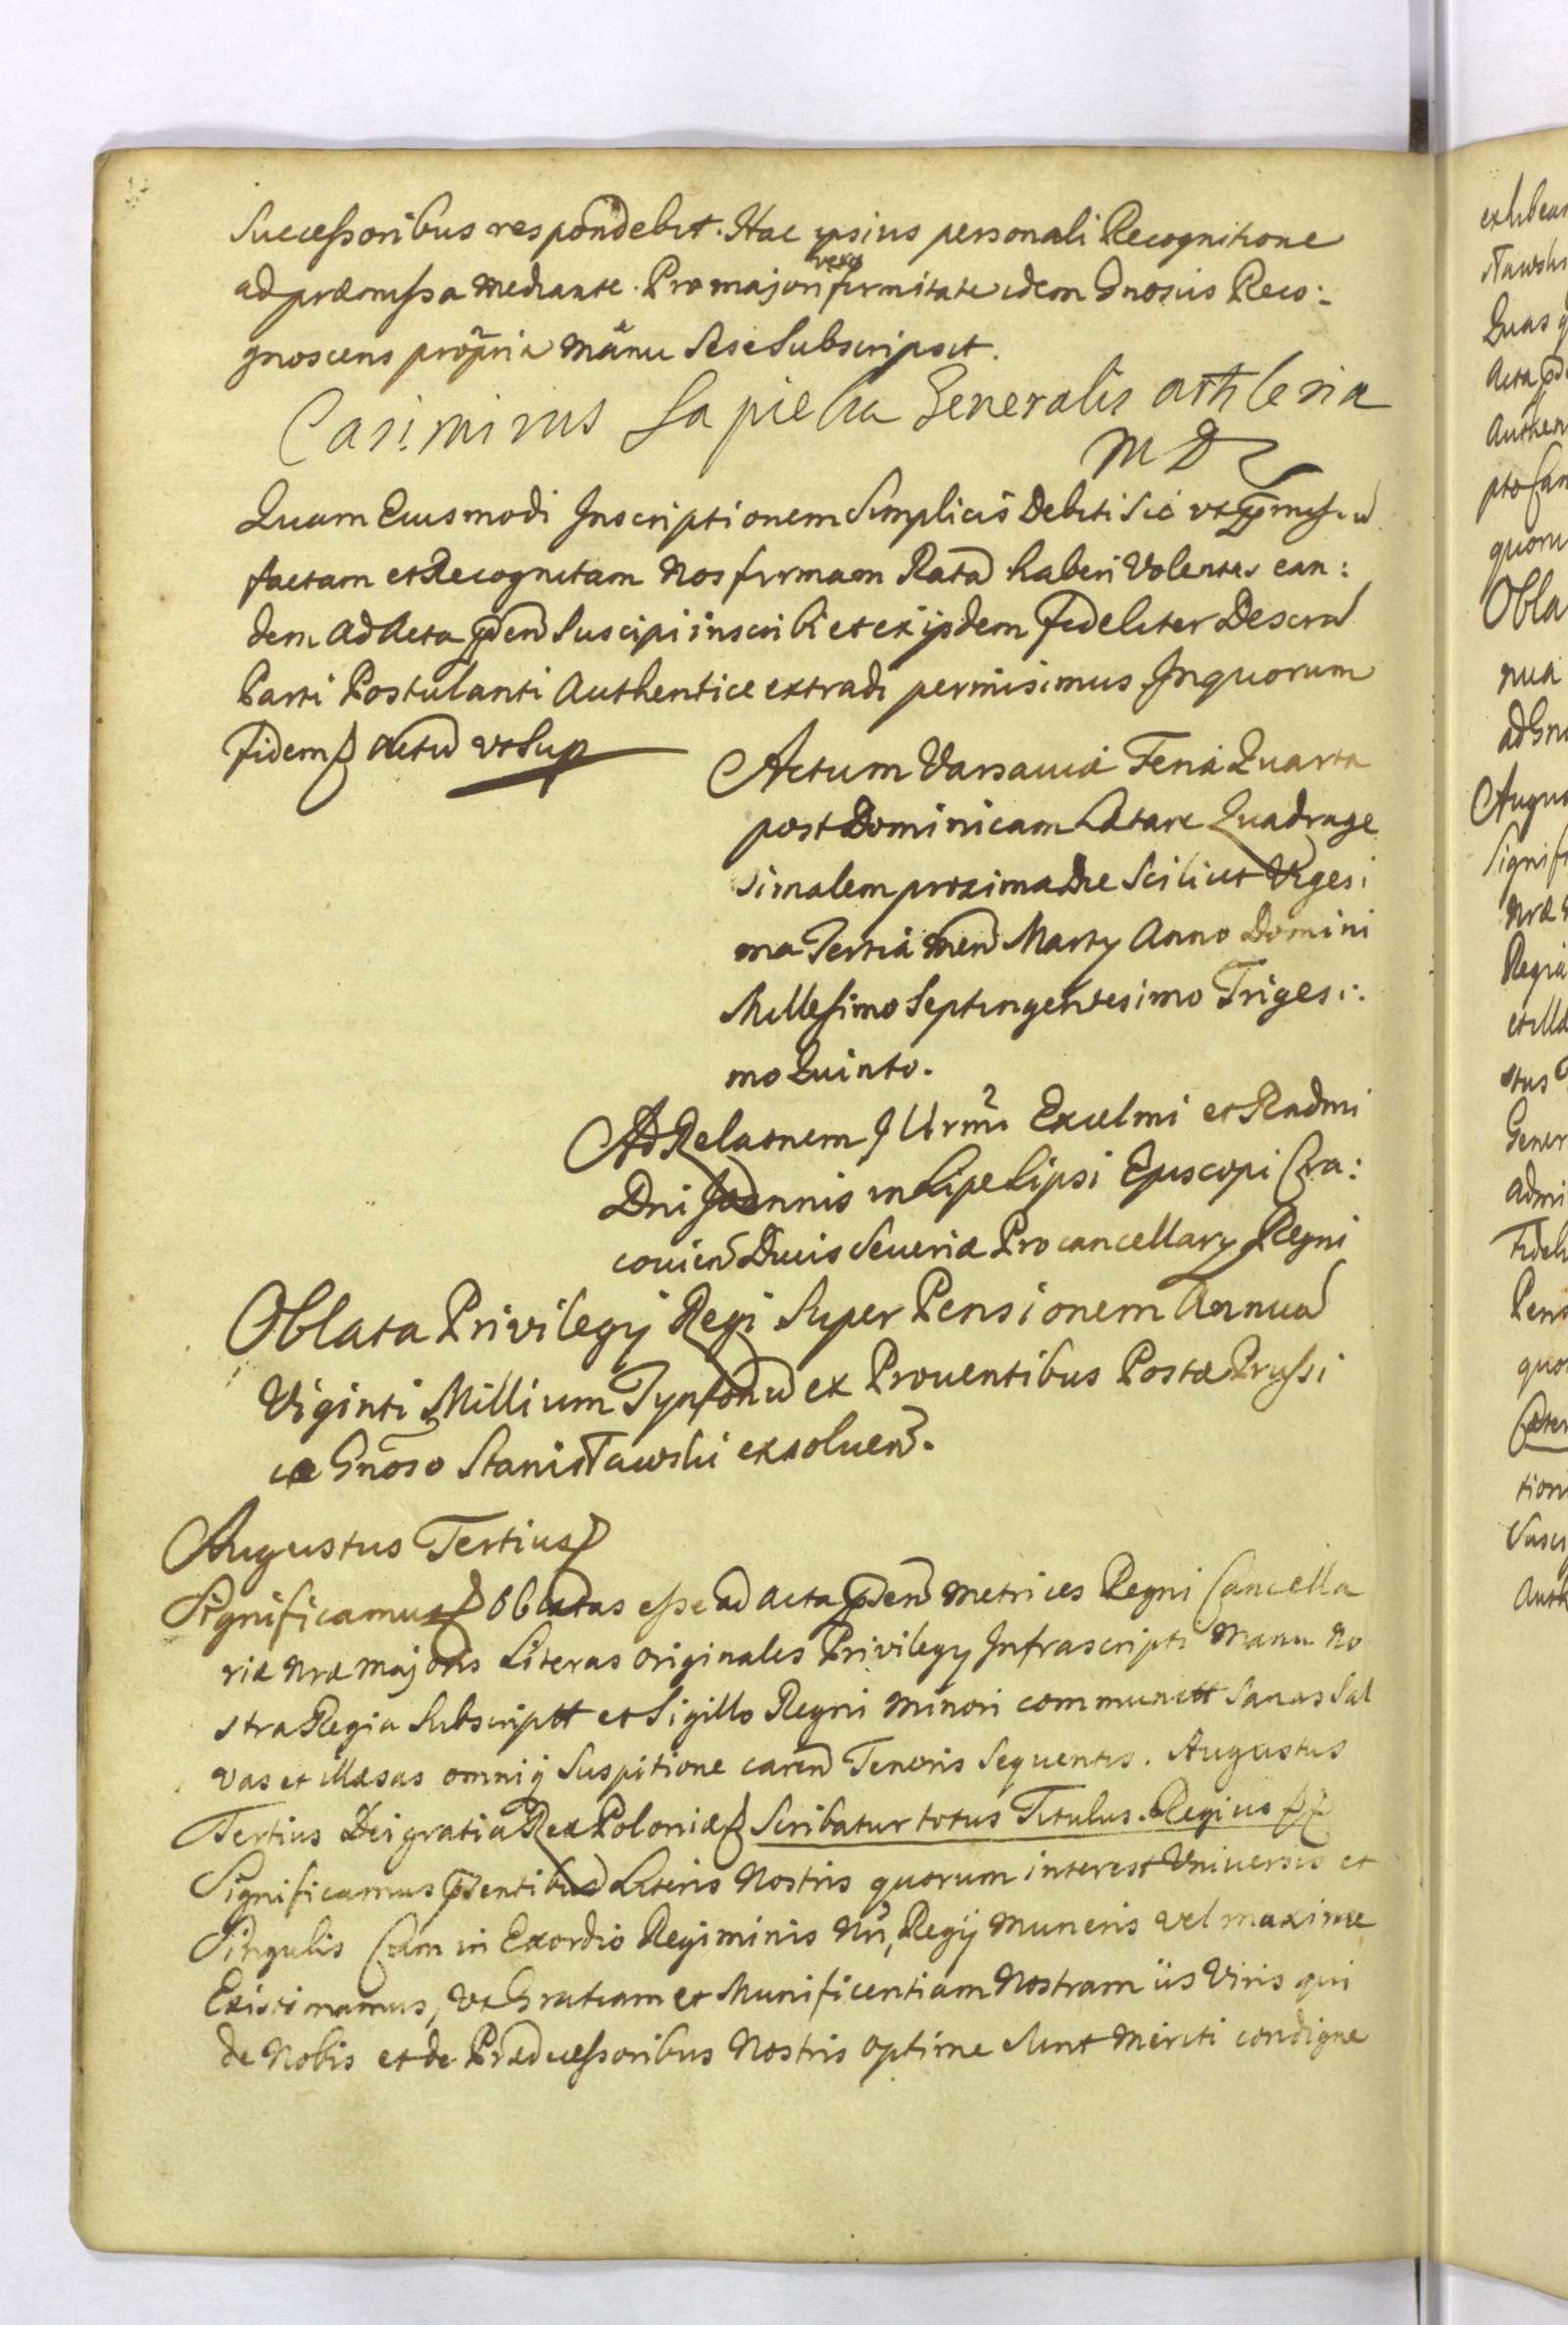 Successoribus respondebit. Hac ipsius personali Recognitione
ad præmissa mediante. Pro majori vero firmitate idem Gnosus Reco:
gnoscens propria manu Se se Subscripsit.
Casimirus Sapieha Generalis arthleria
M D L
Quam Eiusmodi Inscriptionem Simplicis Debiti Sic ut
factam et Recognitam Nos firmam Ratã haberi Volentes ean:
dem ad Acta pñ Suscipi inscribi et ex ijsdem fideliter Descrã
Parti Postulanti Authentice extradi permisimus. In quorum
fidem Actũ ut Sup
Actum Varsaviæ Feria Quarta
post Dominicam Lætare Quadrage
simalem proxima Die Scilicet Viges:
ma Tertia men Martij Anno Domini
Millesimo Septingentesimo Triges:
mo Quinto.
Ad Relaonem Illrmi Excelmi et Rndmi
Dni Joannis in Lipe Lipsi Episcopi Cra:
covien Ducis Severiæ Procancellarij Regni
Oblata Privilegij Regi Super Pensionem Annuã
Viginti Millium Tynfonũ ex Proventibus Postæ Prussi
cæ Gnoso Stanisławski exsoluen.
Augustus Tertius
Significamus Oblatas esse ad Acta pñ Metrices Regni Cancella
riæ Nræ Majoris Literas Originales Privilegij Infrascripti Manu No
stra Regia Subscriptt et Sigillo Regni Minori communitt Sanas Sal
vas et illæsas omniq Suspitione caren Tenoris Sequentis. Augustus
Tertius Dei gratia Rex Poloniæ Scribatur totus Titulus Regius
Significamus pñtibus Literis Nostris quorum interest Universis et
Singulis Cum in Exordio Regiminis Nri, Regij Muneris vel maxime
Existimamus, Ut Gratiam et Munificentiam Nostram iis Viris qui
de Nobis et de Prædecessoribus Nostris optime Sunt meriti condigne